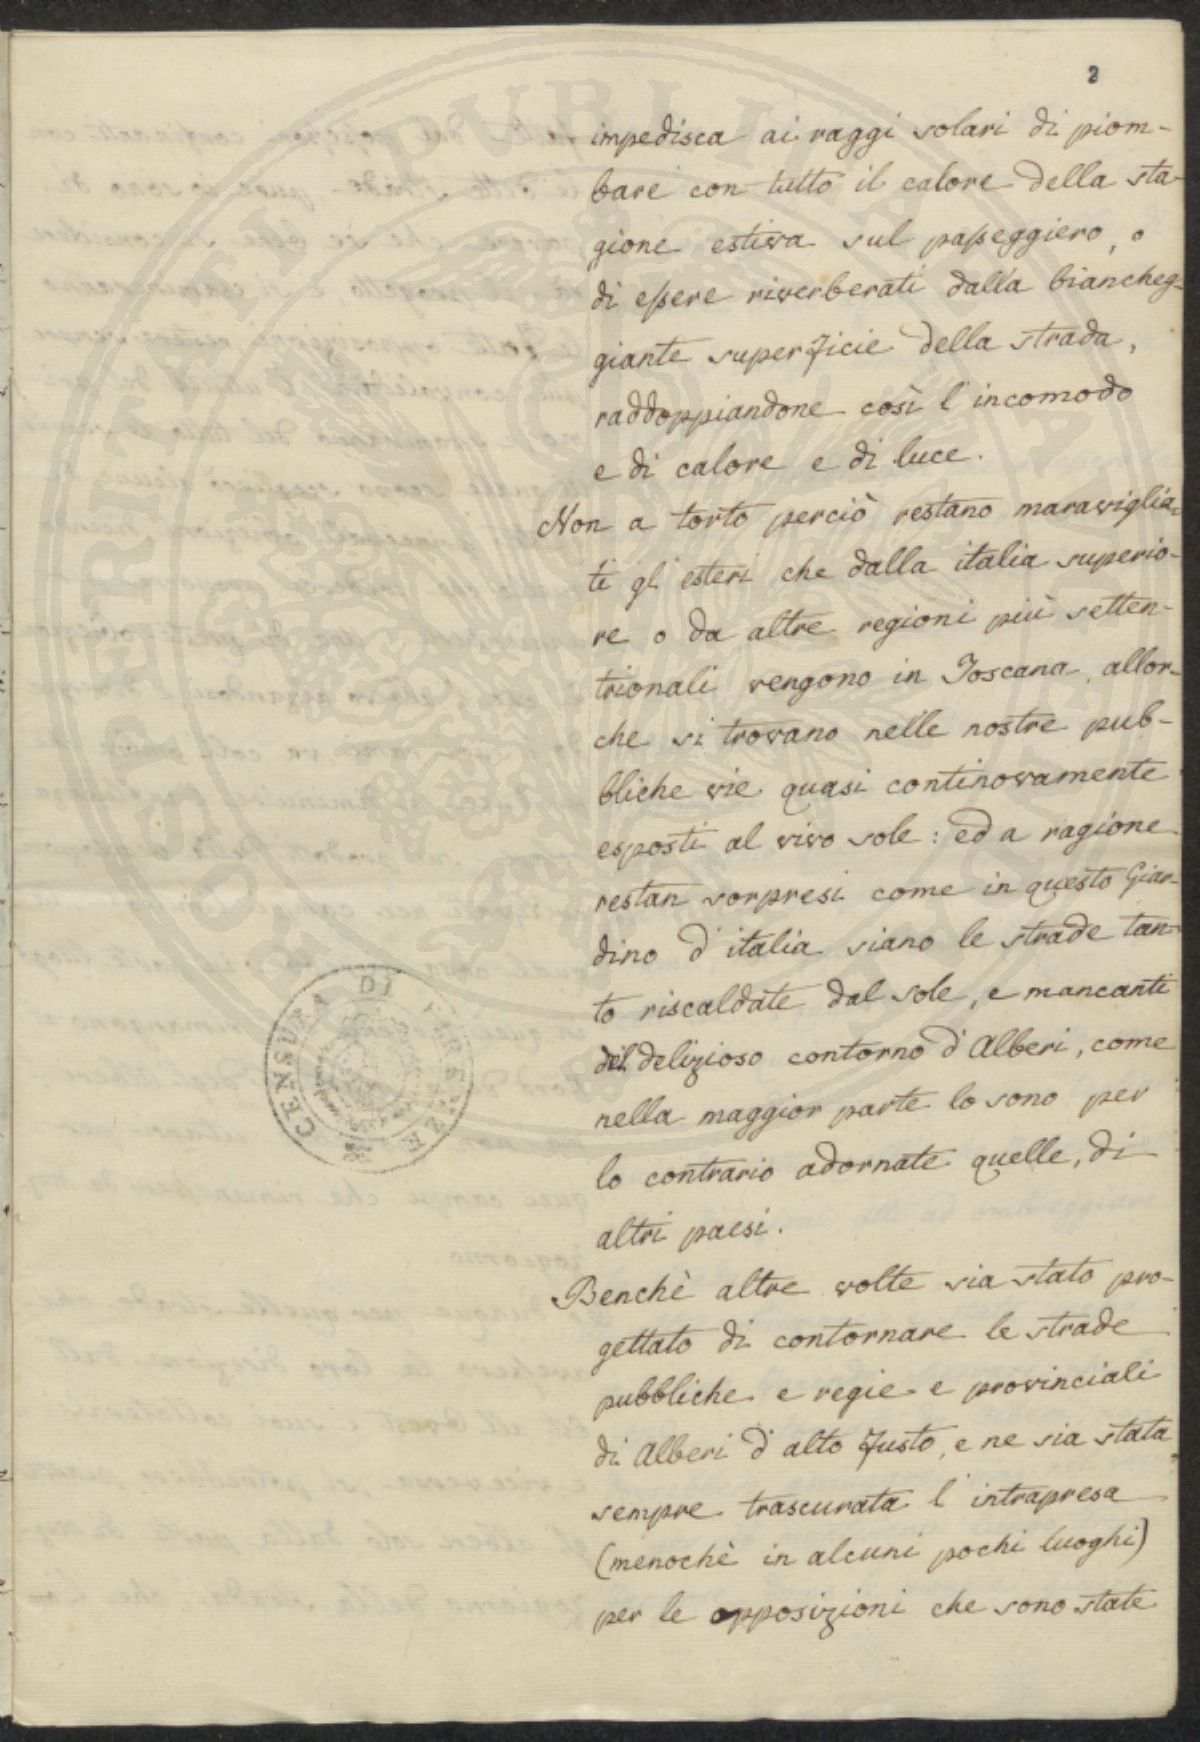 2
impedisca ai raggi solari di piom-
bare con tutto il calore della sta-
gione estiva sul passeggiero, o
di essere riverberati dalla biancheg-
giante superficie della strada,
raddoppiandone così l'incomodo
e di calore e di luce.
Non a torto perciò restano maraviglia-
ti gl'esteri che dalla italia superio-
re o da altre regioni più setten-
trionali vengono in Toscana, allor-
che si trovano nelle nostre pub-
bliche vie quasi continovamente
esposti al vivo sole: ed a ragione
restan sorpresi come in questo Giar-
dino d'italia siano le strade tan-
to riscaldate dal sole, e mancanti
del delizioso contorno d'Alberi, come
nella maggior parte lo sono per
lo contrario adornate quelle, di
altri paesi.
Benchè altre volte sia stato pro-
gettato di contornare le strade
pubbliche e regie e provinciali
di Alberi d'alto fusto, e ne sia stata
sempre trascurata l'intrapresa
(menochè in alcuni pochi luoghi)
per le opposizioni che sono state
CENSURA DI FIRENZE